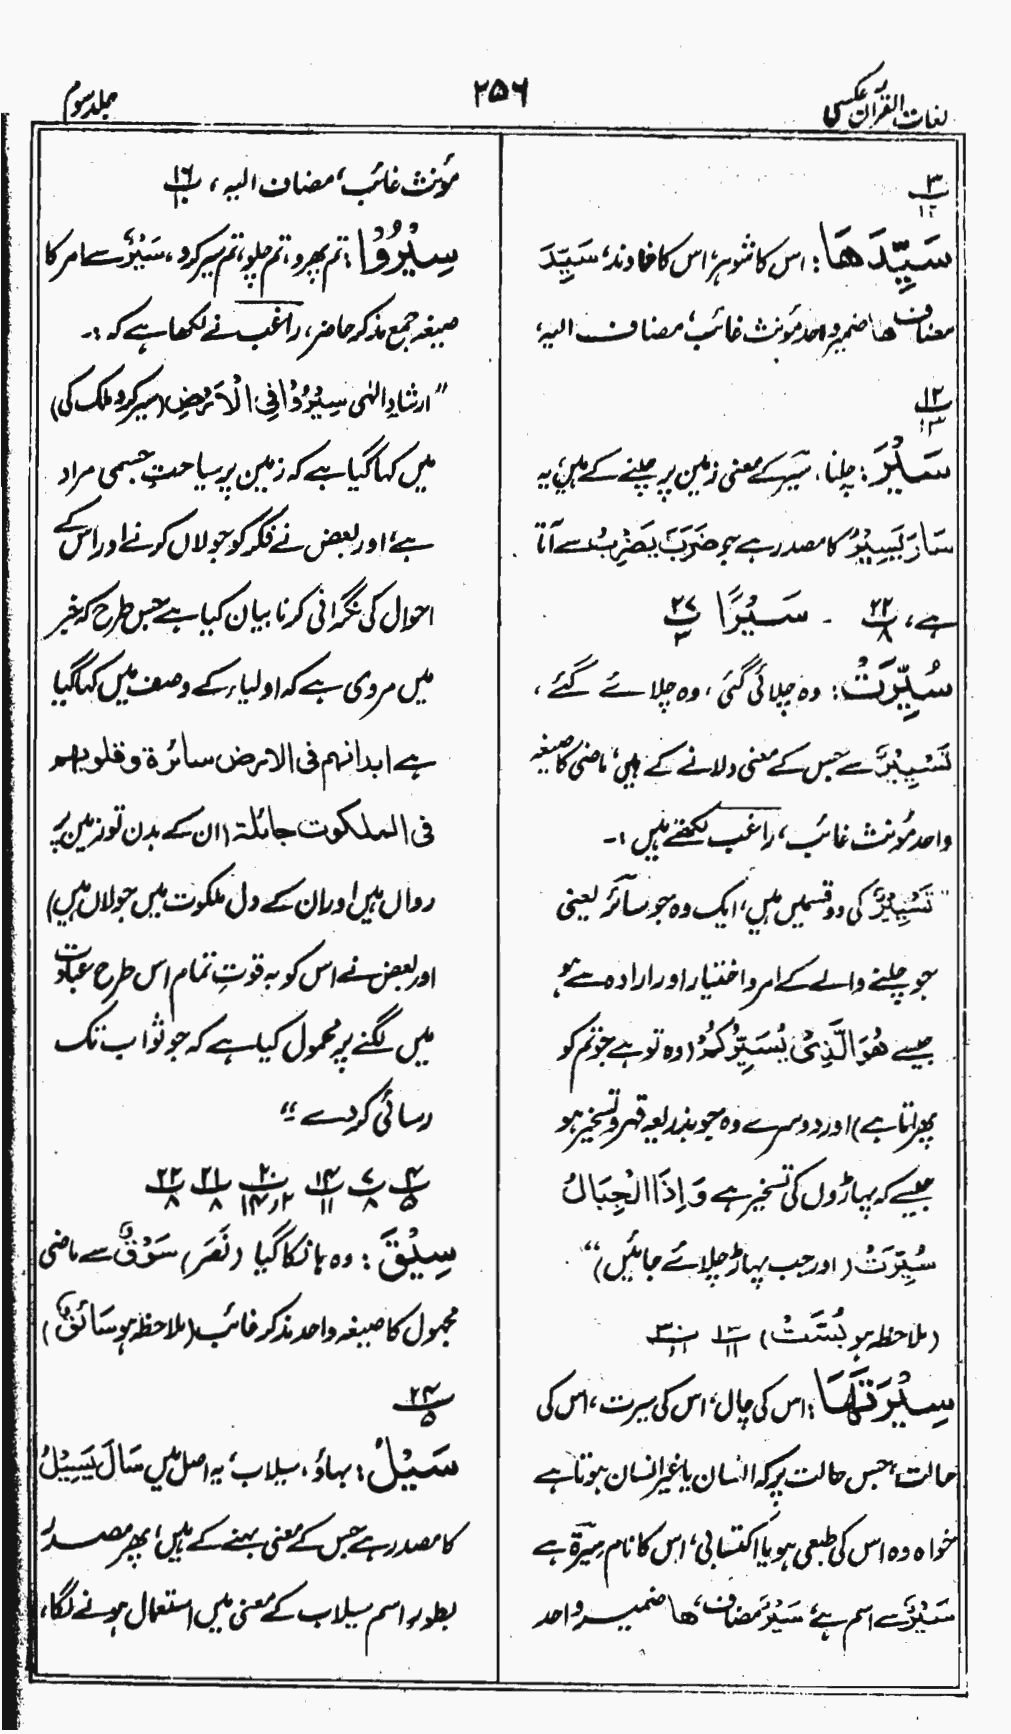 لغات القرآن عکسی
۲۵۶
جلد سوم
۳
۱۲
سَیِّدَھَا: اس کا شوہر، اس کا خاوند، سَیِّدَ
مضاف ھا ضمیر واحد مؤنث غائب، مضاف الیہ،
۱۲
۱۳
سَیْرَ: چلنا، سَیر کے معنی زمین پر چلنے کے ہیں، یہ
سَارَ یَسِیْرُ کا مصدر ہے جو ضَرَبَ یَضْرِبُ سے آتا
ہے، ۲۲/۸ ۔ سَیْرًا ۲۷/۳
سُیِّرَتْ: وہ چلائی گئی، وہ چلائے گئے،
تَسْیِیْرٌ سے جس کے معنی دلانے کے ہیں، ماضی کا صیغہ
واحد مؤنث غائب، راغب لکھتے ہیں :۔
"تَسْیِیْرٌ کی دو قسمیں ہیں، ایک وہ جو سائر یعنی
جو چلنے والے کے امر و اختیار اور ارادہ سے ہو
جیسے ھُوَ الَّذِیْ یُسَیِّرُکُمْ (وہ تو ہے جو تم کو
پھراتا ہے) اور دوسرے وہ جو بذریعہ قہر و تسخیر ہو
جیسے کہ پہاڑوں کی تسخیر ہے وَاِذَا الْجِبَالُ
سُیِّرَتْ (اور جب پہاڑ چلائے جائیں)"
(ملاحظہ ہو بُسَّت) ۱۳/۱۱ ۳۰/۱،۶
سِیْرَتَھَا: اس کی چال، اس کی سیرت، اس کی
حالت، جس حالت پر کہ انسان یا غیر انسان ہوتا ہے
خواہ وہ اس کی طبعی ہو یا اکتسابی، اس کا نام سِیرۃ ہے
سَیْرٌ سے اسم ہے، سَیْرٌ مضاف، ھا ضمیر واحد
مؤنث غائب، مضاف الیہ، ۱۶/۱۰
سِیْرُوْا: تم پھرو، تم چلو، تم سیر کرو، سَیْرٌ سے امر کا
صیغہ جمع مذکر حاضر، راغب نے لکھا ہے کہ :۔
"ارشادِ الٰہی سِیْرُوْا فِی الْاَرْضِ (سیر کرو ملک کی)
میں کہا گیا ہے کہ زمین پر سیاحتِ جسمی مراد
ہے، اور بعض نے فکر کو جولاں کرنے اور اس کے
احوال کی نگرانی کرنا بیان کیا ہے جس طرح کہ خبر
میں مروی ہے کہ اولیاء کے وصف میں کہا گیا
ہے ابدانہم فی الارض سائرۃ وقلوبہم
فی الملکوت جائلۃ (ان کے بدن تو زمین پر
رواں ہیں اور ان کے دل ملکوت میں جولاں ہیں)
اور بعض نے اس کو بہ قوتِ تمام اس طرح عبادت
میں لگنے پر محمول کیا ہے کہ جو ثواب تک
رسائی کر دے"
۴/۵ ۷/۸ ۱۴/۱۱ ۲۰/۲،۱۴ ۲۱/۸ ۲۲/۸
سِیْقَ: وہ ہانکا گیا (نَصَرَ) سَوْقٌ سے ماضی
مجہول کا صیغہ واحد مذکر غائب (ملاحظہ ہو سَائق)
۲۴
۵
سَیْلُ: بہاؤ، سیلاب، یہ اصل میں سَالَ یَسِیْلُ
کا مصدر ہے جس کے معنی بہنے کے ہیں، پھر مصدر
بطور اسم سیلاب کے معنی میں استعمال ہونے لگا،